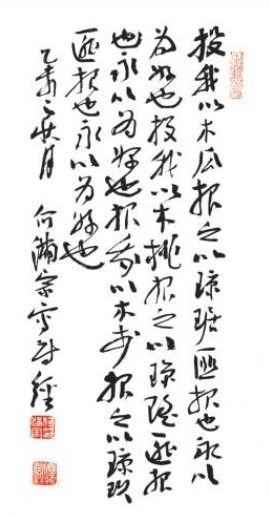 投我以木瓜报之以琼琚匪报也永以
为好也投我以木桃报之以琼瑶匪报
也永以为好也投我以木李报之以琼玖
匪报也永以为好也
乙未之月 何满宗写诗經